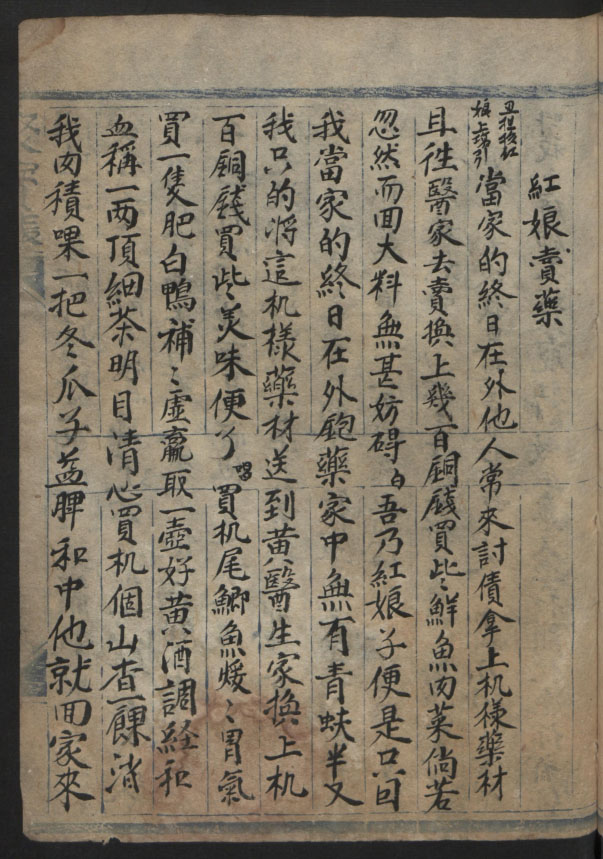 紅娘賣藥
丑扮紅娘上引當家的終日在外他人常來討債拿上机樣藥材
且徃醫家去賣換上幾百銅錢買些鮮魚肉菜倘若
忽然而回大料無甚妨碍白吾乃紅娘子便是只因
我當家的終日在外跑藥家中無有青蚨半文
我只的將這机樣藥材送到黄醫生家換上机
百銅錢買些美味便了唱買机尾鯽魚煖〻胃氣
買一隻肥白鴨補〻虛羸取一壺好黄酒調經和
血稱一兩頂細茶明目清心買机個山查餜消
我肉積喍一把冬瓜子益脾和中他就回家來